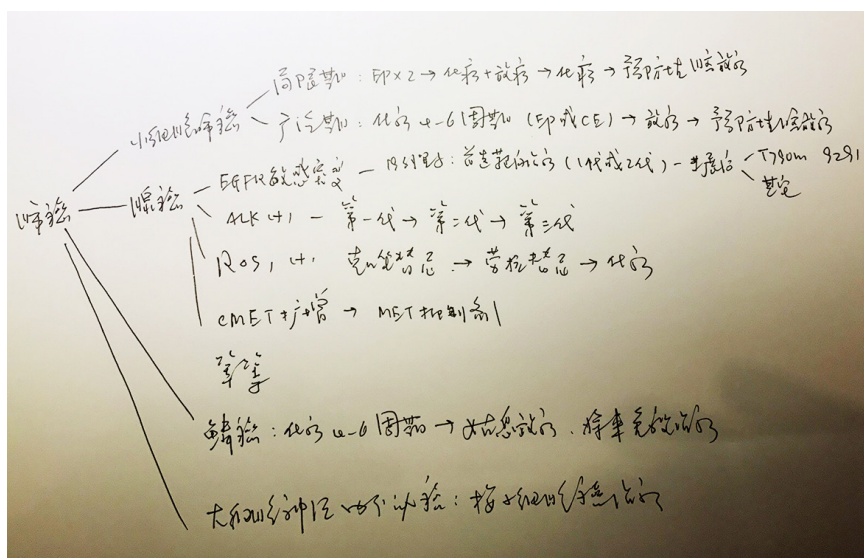 局限期：EP×2→化疗+放疗→化疗→预防性脑放疗
小细胞肺癌
广泛期：化疗4-6周期（EP或CE）→放疗→预防性脑放疗
EGFR敏感突变—19或21：首选靶向治疗（1代或2代）—进展后
T790m 9291
其它
肺癌
腺癌
ALK(+)—第一代→第二代→第三代
ROS1(+) 克唑替尼→劳拉替尼→化疗
cMET扩增→MET抑制剂
等等
鳞癌：化疗4-6周期→姑息放疗、将来免疫治疗
大细胞神经内分泌癌：按小细胞肺癌治疗